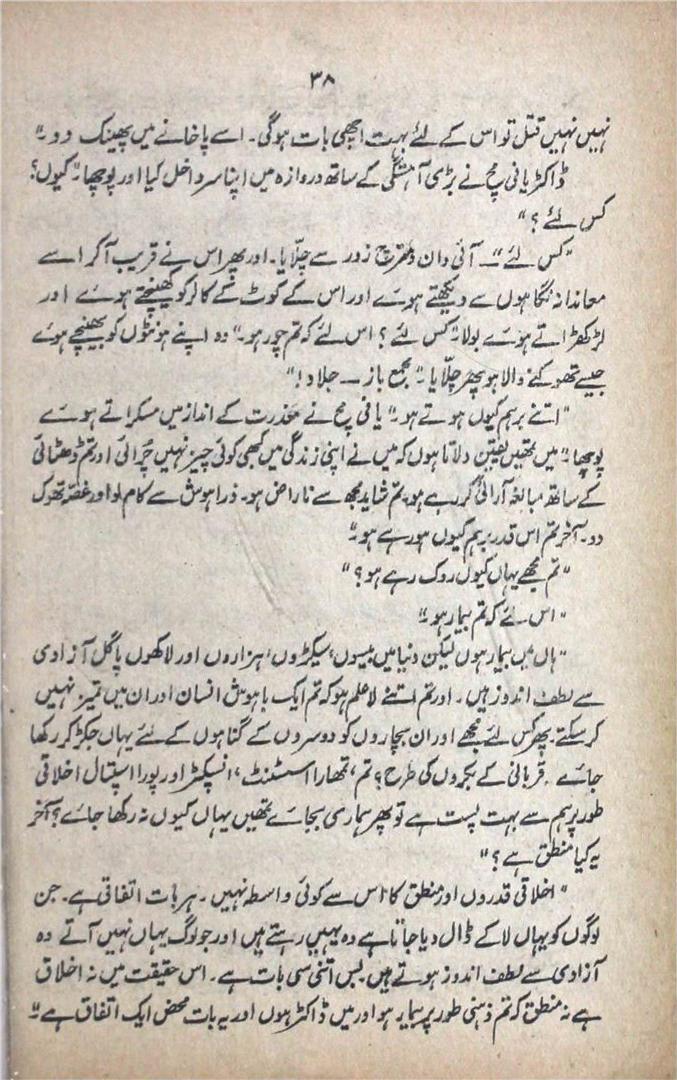 ۳۸
نہیں نہیں قتل تو اس کے لئے بہت اچھی بات ہوگی۔ اسے پاخانے میں پھینک دو۔"
ڈاکٹر یانی پچ نے بڑی آہستگی کے ساتھ دروازہ میں اپنا سر داخل کیا اور پوچھا۔ "کیوں؟
کس لئے؟"
"کس لئے"۔ آئی وان دمترچ زور سے چلّایا۔ اور پھر اس نے قریب آکر اسے
معاندانہ نگاہوں سے دیکھتے ہوئے اور اس کے کوٹ کے کالر کو کھینچتے ہوئے اور
لڑکھڑاتے ہوئے بولا "کس لئے؟ اس لئے کہ تم چور ہو۔" وہ اپنے ہونٹوں کو بھینچے ہوئے
جیسے تھوکنے والا ہو پھر چلّایا۔ "مجمع باز — جلاد!"
"اتنے برہم کیوں ہوتے ہو۔" یافی پچ نے معذرت کے انداز میں مسکراتے ہوئے
پوچھا۔ "میں تمھیں یقین دلاتا ہوں کہ میں نے اپنی زندگی میں کبھی کوئی چیز نہیں چُرائی اور تم ڈھٹائی
کے ساتھ مبالغہ آرائی کر رہے ہو۔ تم شاید مجھ سے ناراض ہو۔ ذرا ہوش سے کام لو اور غصّہ تھوک
دو۔ آخر تم اس قدر برہم کیوں ہو رہے ہو۔"
"تم مجھے یہاں کیوں روک رہے ہو؟"
"اس لئے کہ تم بیمار ہو۔"
"ہاں میں بیمار ہوں لیکن دنیا میں بیسوں، سیکڑوں، ہزاروں اور لاکھوں پاگل آزادی
سے لطف اندوز ہیں۔ اور تم اتنے لاعلم ہو کہ تم ایک باہوش انسان اور ان میں تمیز نہیں
کر سکتے۔ پھر کس لئے مجھے اور ان بچاروں کو دوسروں کے گناہوں کے لئے یہاں جکڑ کر رکھا
جائے۔ قربانی کے بکروں کی طرح؟ تم، تمھارا اسسٹنٹ، انسپکٹر اور پورا اسپتال اخلاقی
طور پر ہم سے بہت پست ہے تو پھر ہماری بجائے تمھیں یہاں کیوں نہ رکھا جائے؟ آخر
یہ کیا منطق ہے؟"
"اخلاقی قدروں اور منطق کا اس سے کوئی واسطہ نہیں۔ ہر بات اتفاقی ہے۔ جن
لوگوں کو یہاں لا کے ڈال دیا جاتا ہے وہ یہیں رہتے ہیں اور جو لوگ یہاں نہیں آتے وہ
آزادی سے لطف اندوز ہوتے ہیں۔ بس اتنی سی بات ہے۔ اس حقیقت میں نہ اخلاق
ہے نہ منطق کہ تم ذہنی طور پر بیمار ہو اور میں ڈاکٹر ہوں اور یہ بات محض ایک اتفاق ہے۔"